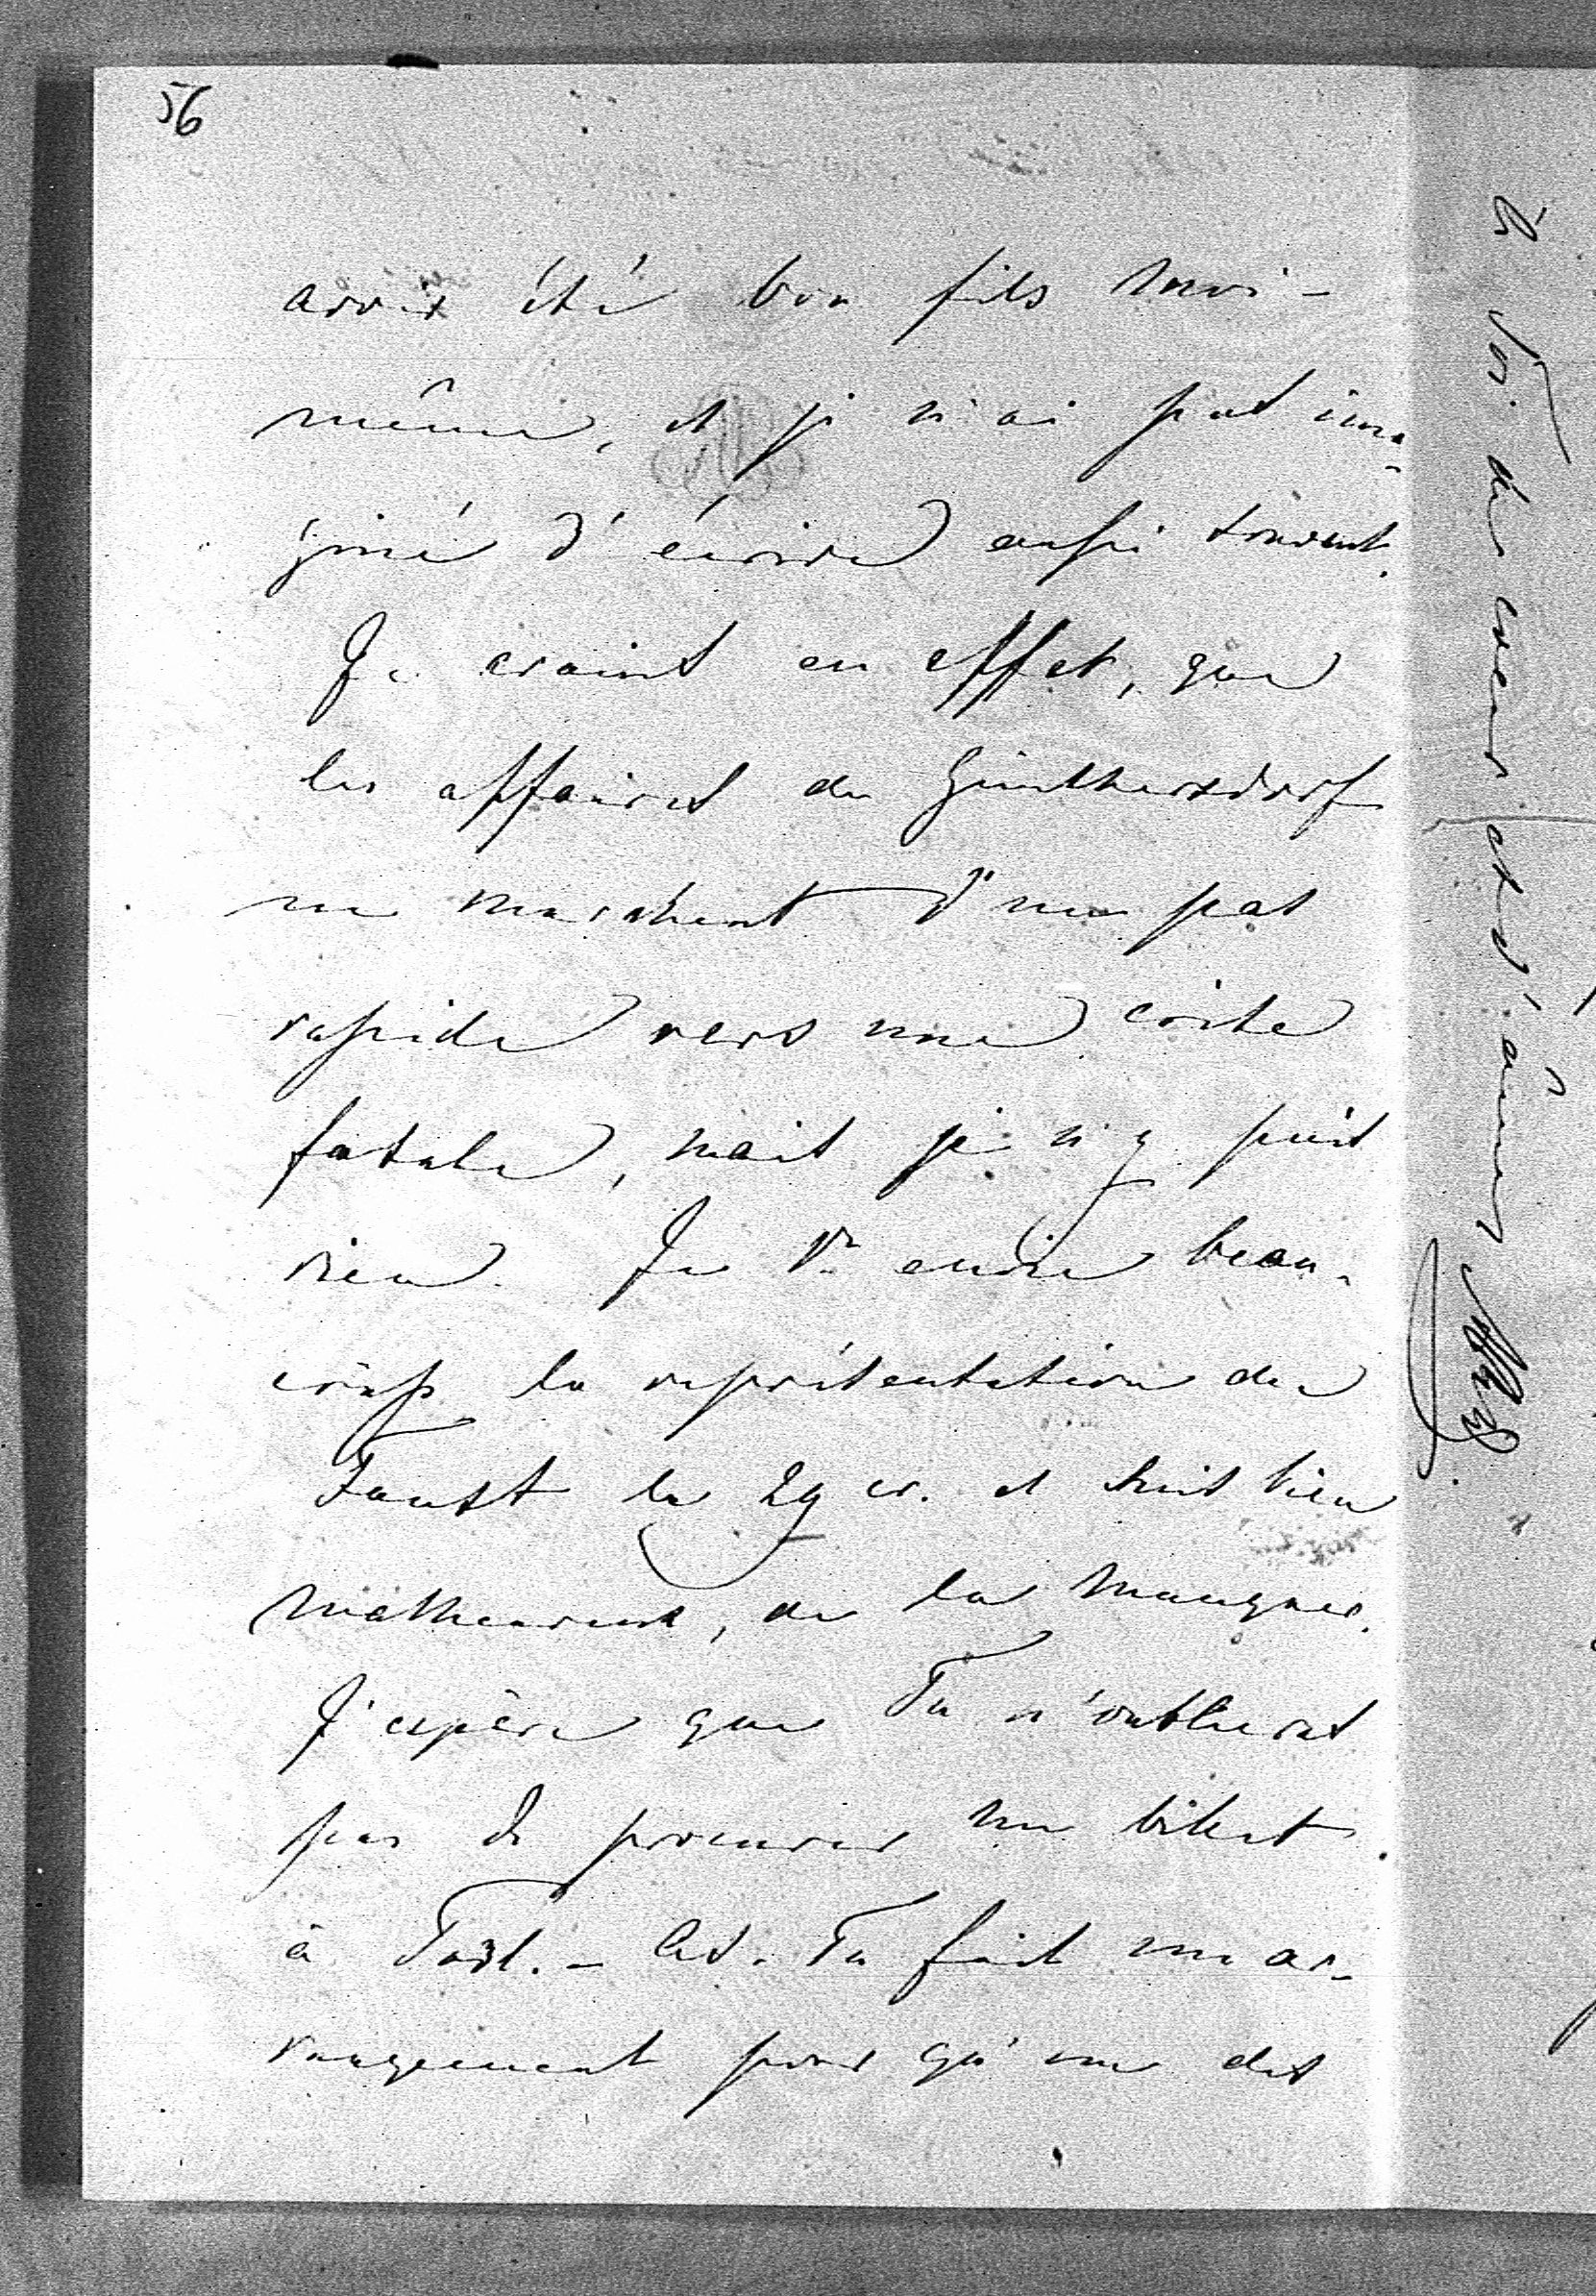 56
avoir été bon fils moi-
même, et je n'ai pas ima-
giné d'écrire aussi souvent.
Je craint en effet, que
les affaires de Günthersdorf
ne marchent d'un pas
rapide vers une crise
fatale, mais je n'y puis
rien. Je t'envie beau-
coup la représentation de
Faust le 29 cr. et suis bien
malheureux, de la manquer.
J'espère que Tu n'oublieras
pas de procurer un billet
à Tu fait un ar-
rangement pour qu' des
à Toi de coeur et d'âme